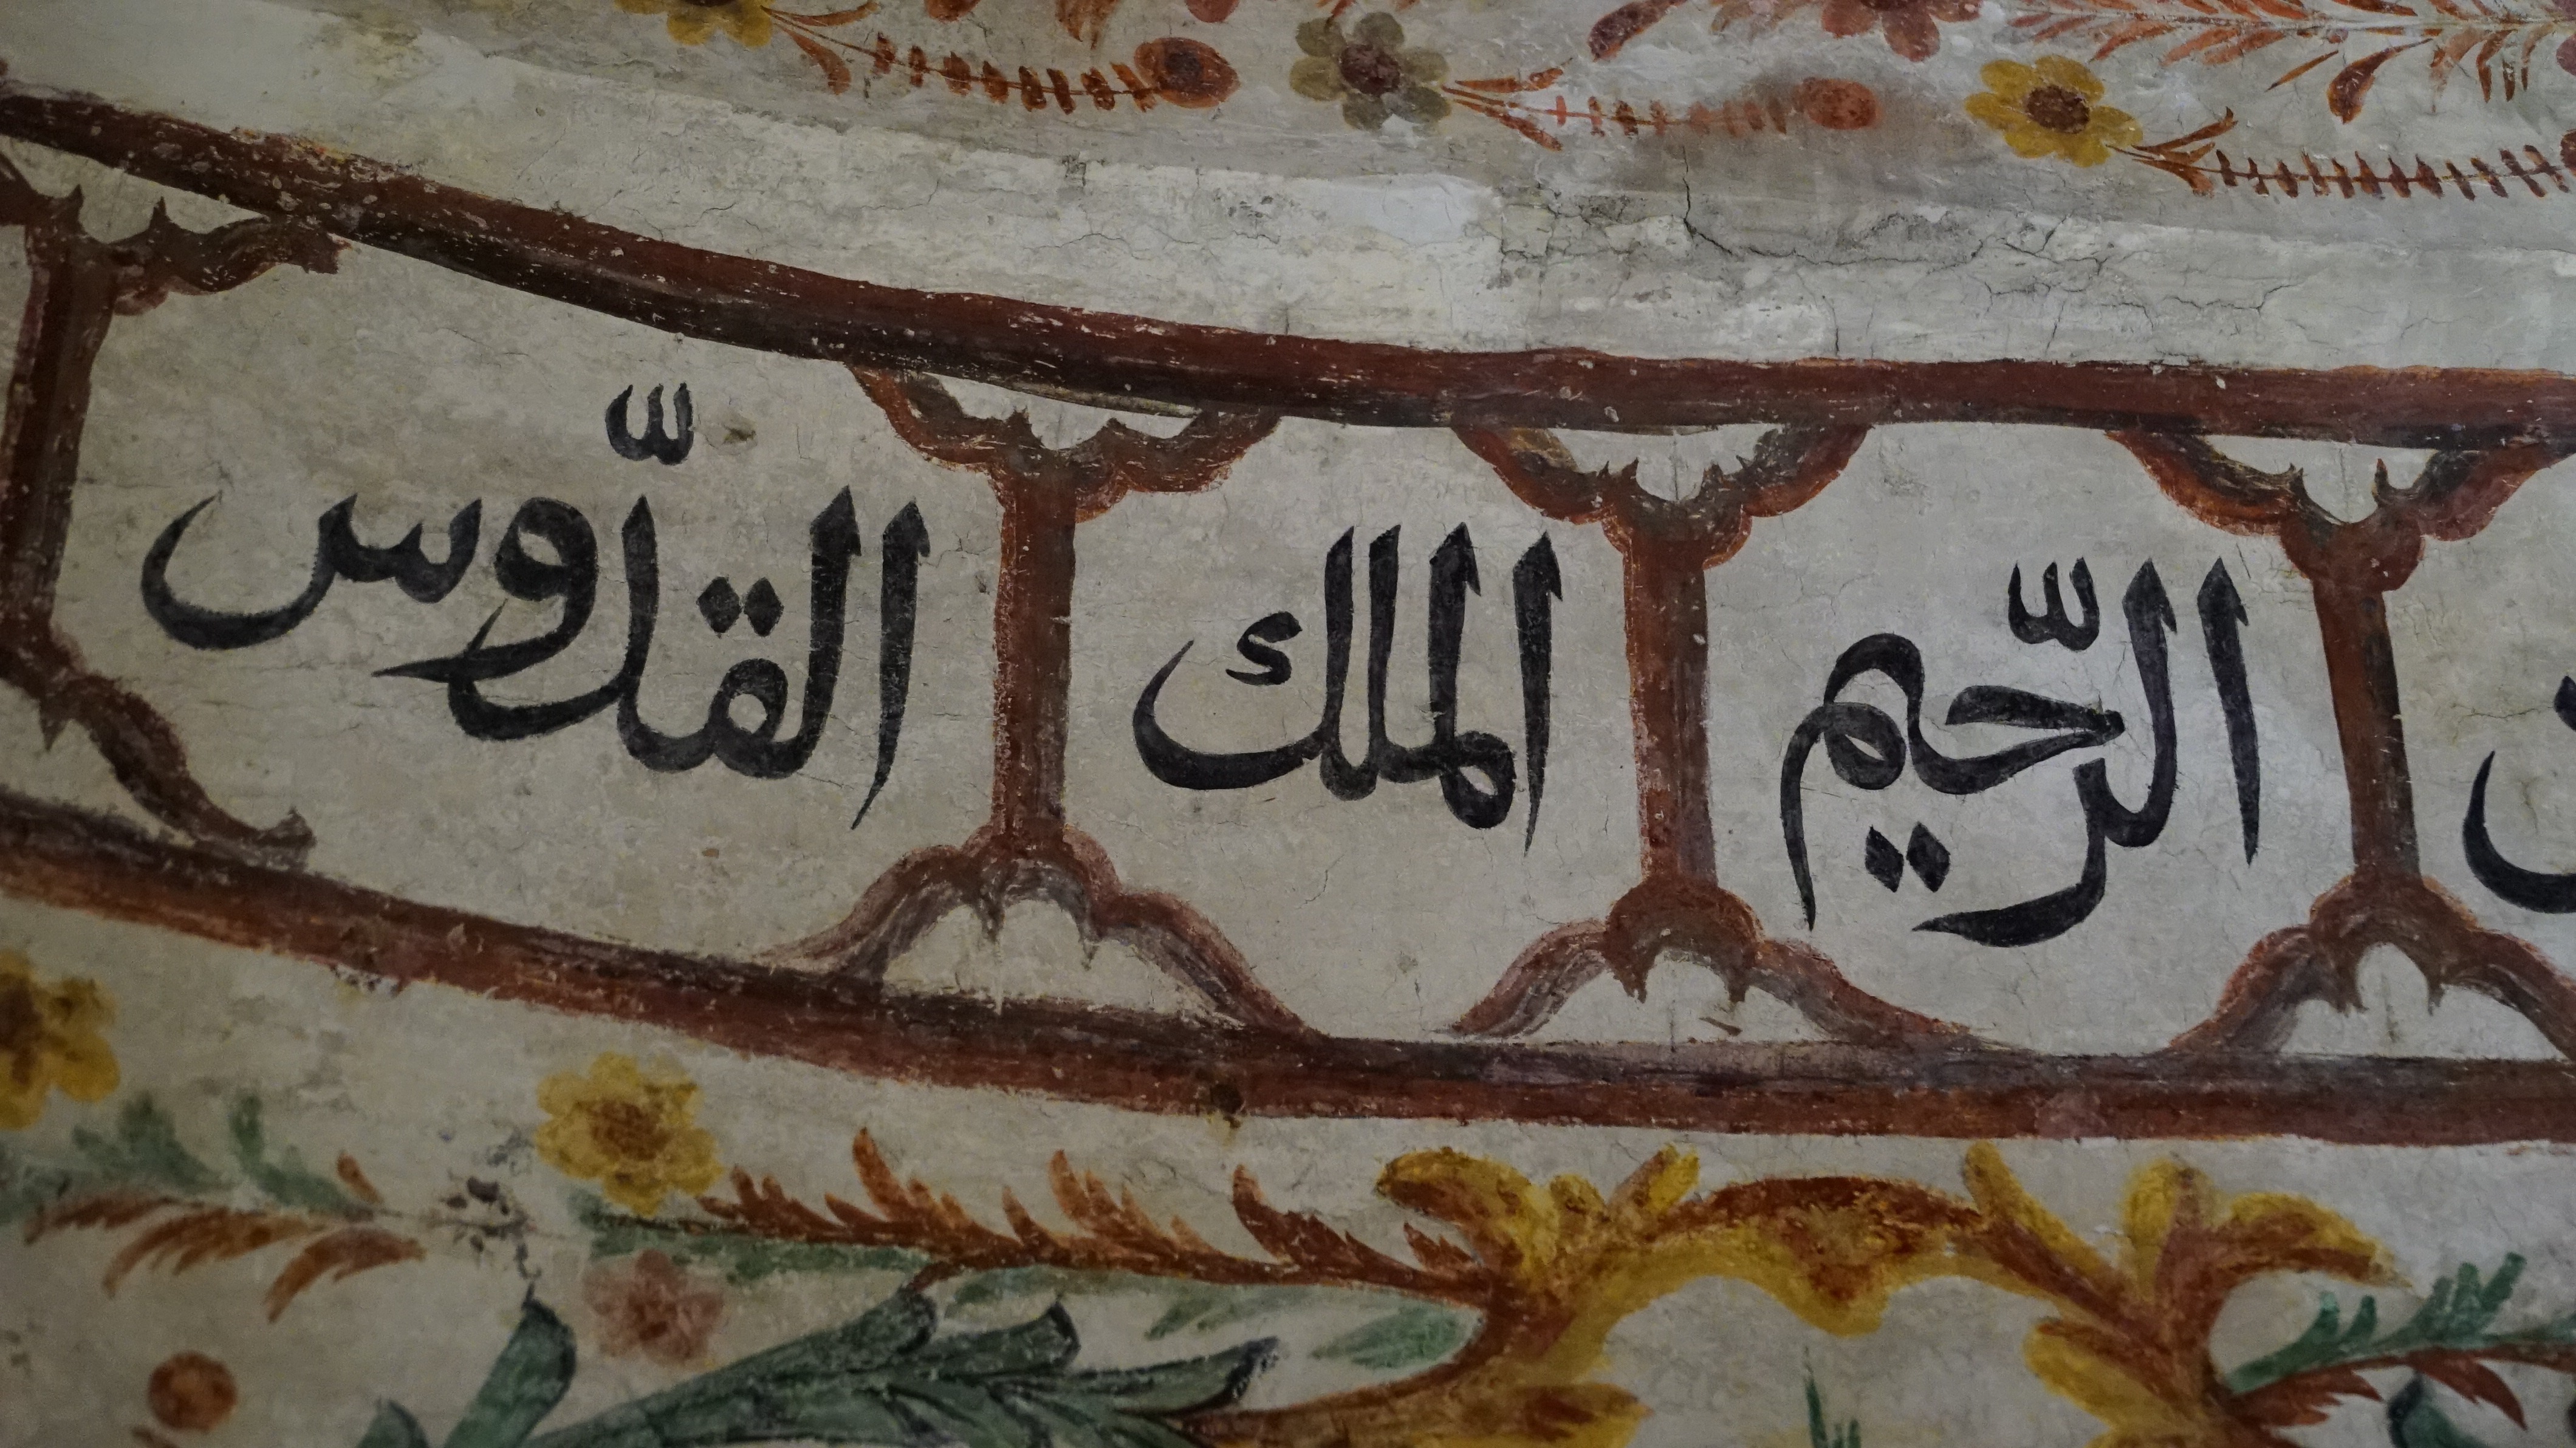 الرّحيم الملك القدّوس